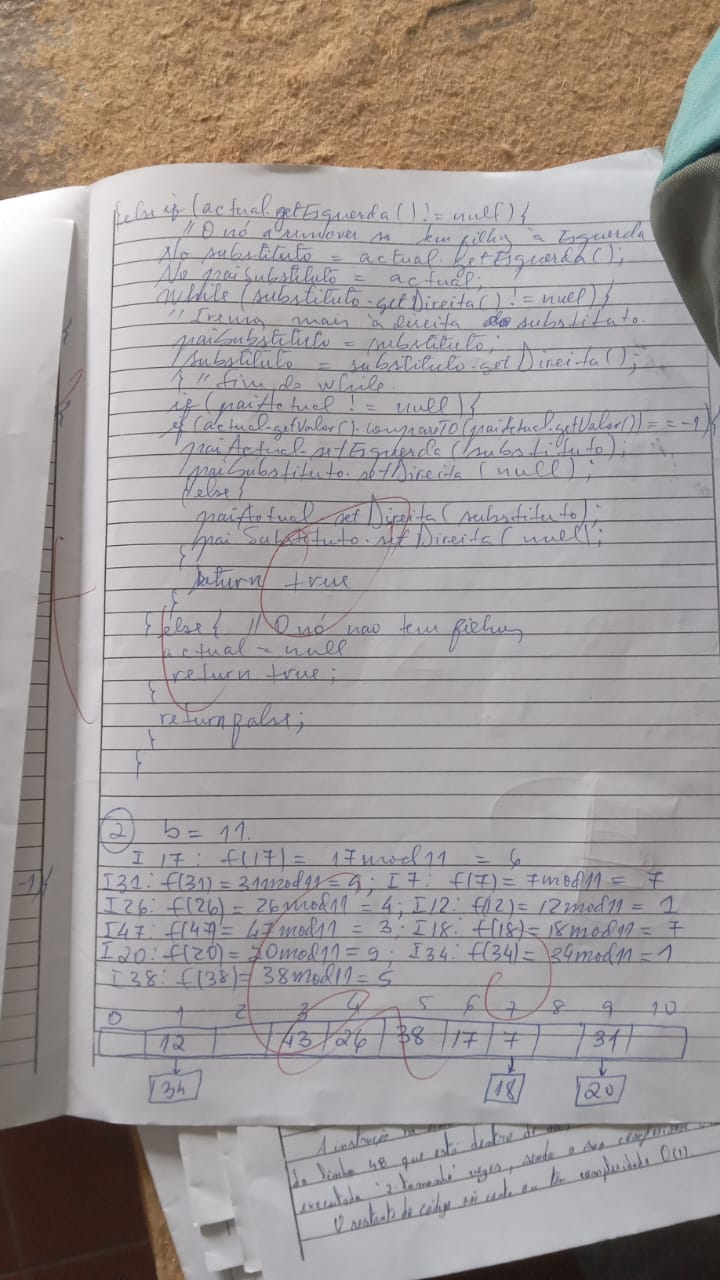 }else if (actual.getEsquerda() != null) {
// O nó a remover so tem filho à Esquerda
No substituto = actual.GetEsquerda();
No paiSubstituto = actual;
While (substituto.getDireita() != null) {
mais à direita do substituto.
paiSubstituto = substituto;
substituto = substituto.getDireita();
} // fim do while.
if (paiActual != null) {
if (actual.getValor().compareTO(paiActual.getValor()) == -1) {
paiActual.setEsquerda (substituto);
paiSubstituto.setDireita (null);
}else{
paiActual.setDireita (substituto);
pai Substituto.setDireita (null);
}
return true
}
} else { // O nó nao tem filhos
actual = null
return true;
}
return false;
}
}
2 b = 11.
I 17: f(17) = 17 mod 11 = 6
I31: f(31) = 31 mod 11 = 9; I7: f(7) = 7 mod 11 = 7
I26: f(26) = 26 mod 11 = 4; I12: f(12) = 12 mod 11 = 1
I47: f(47) = 47 mod 11 = 3; I18: f(18) = 18 mod 11 = 7
I20: f(20) = 20 mod 11 = 9; I34: f(34) = 34 mod 11 = 1
I38: f(38) = 38 mod 11 = 5
0 1 2 3 4 5 6 7 8 9 10
12 43 26 38 17 7 31
34 18 20
-1)
A instrução na
da linha 48 que está dentro de
executada "2.tamanho" vezes, sendo a sua complexidade
O restante do código não conta ou tem complexidade O(1).